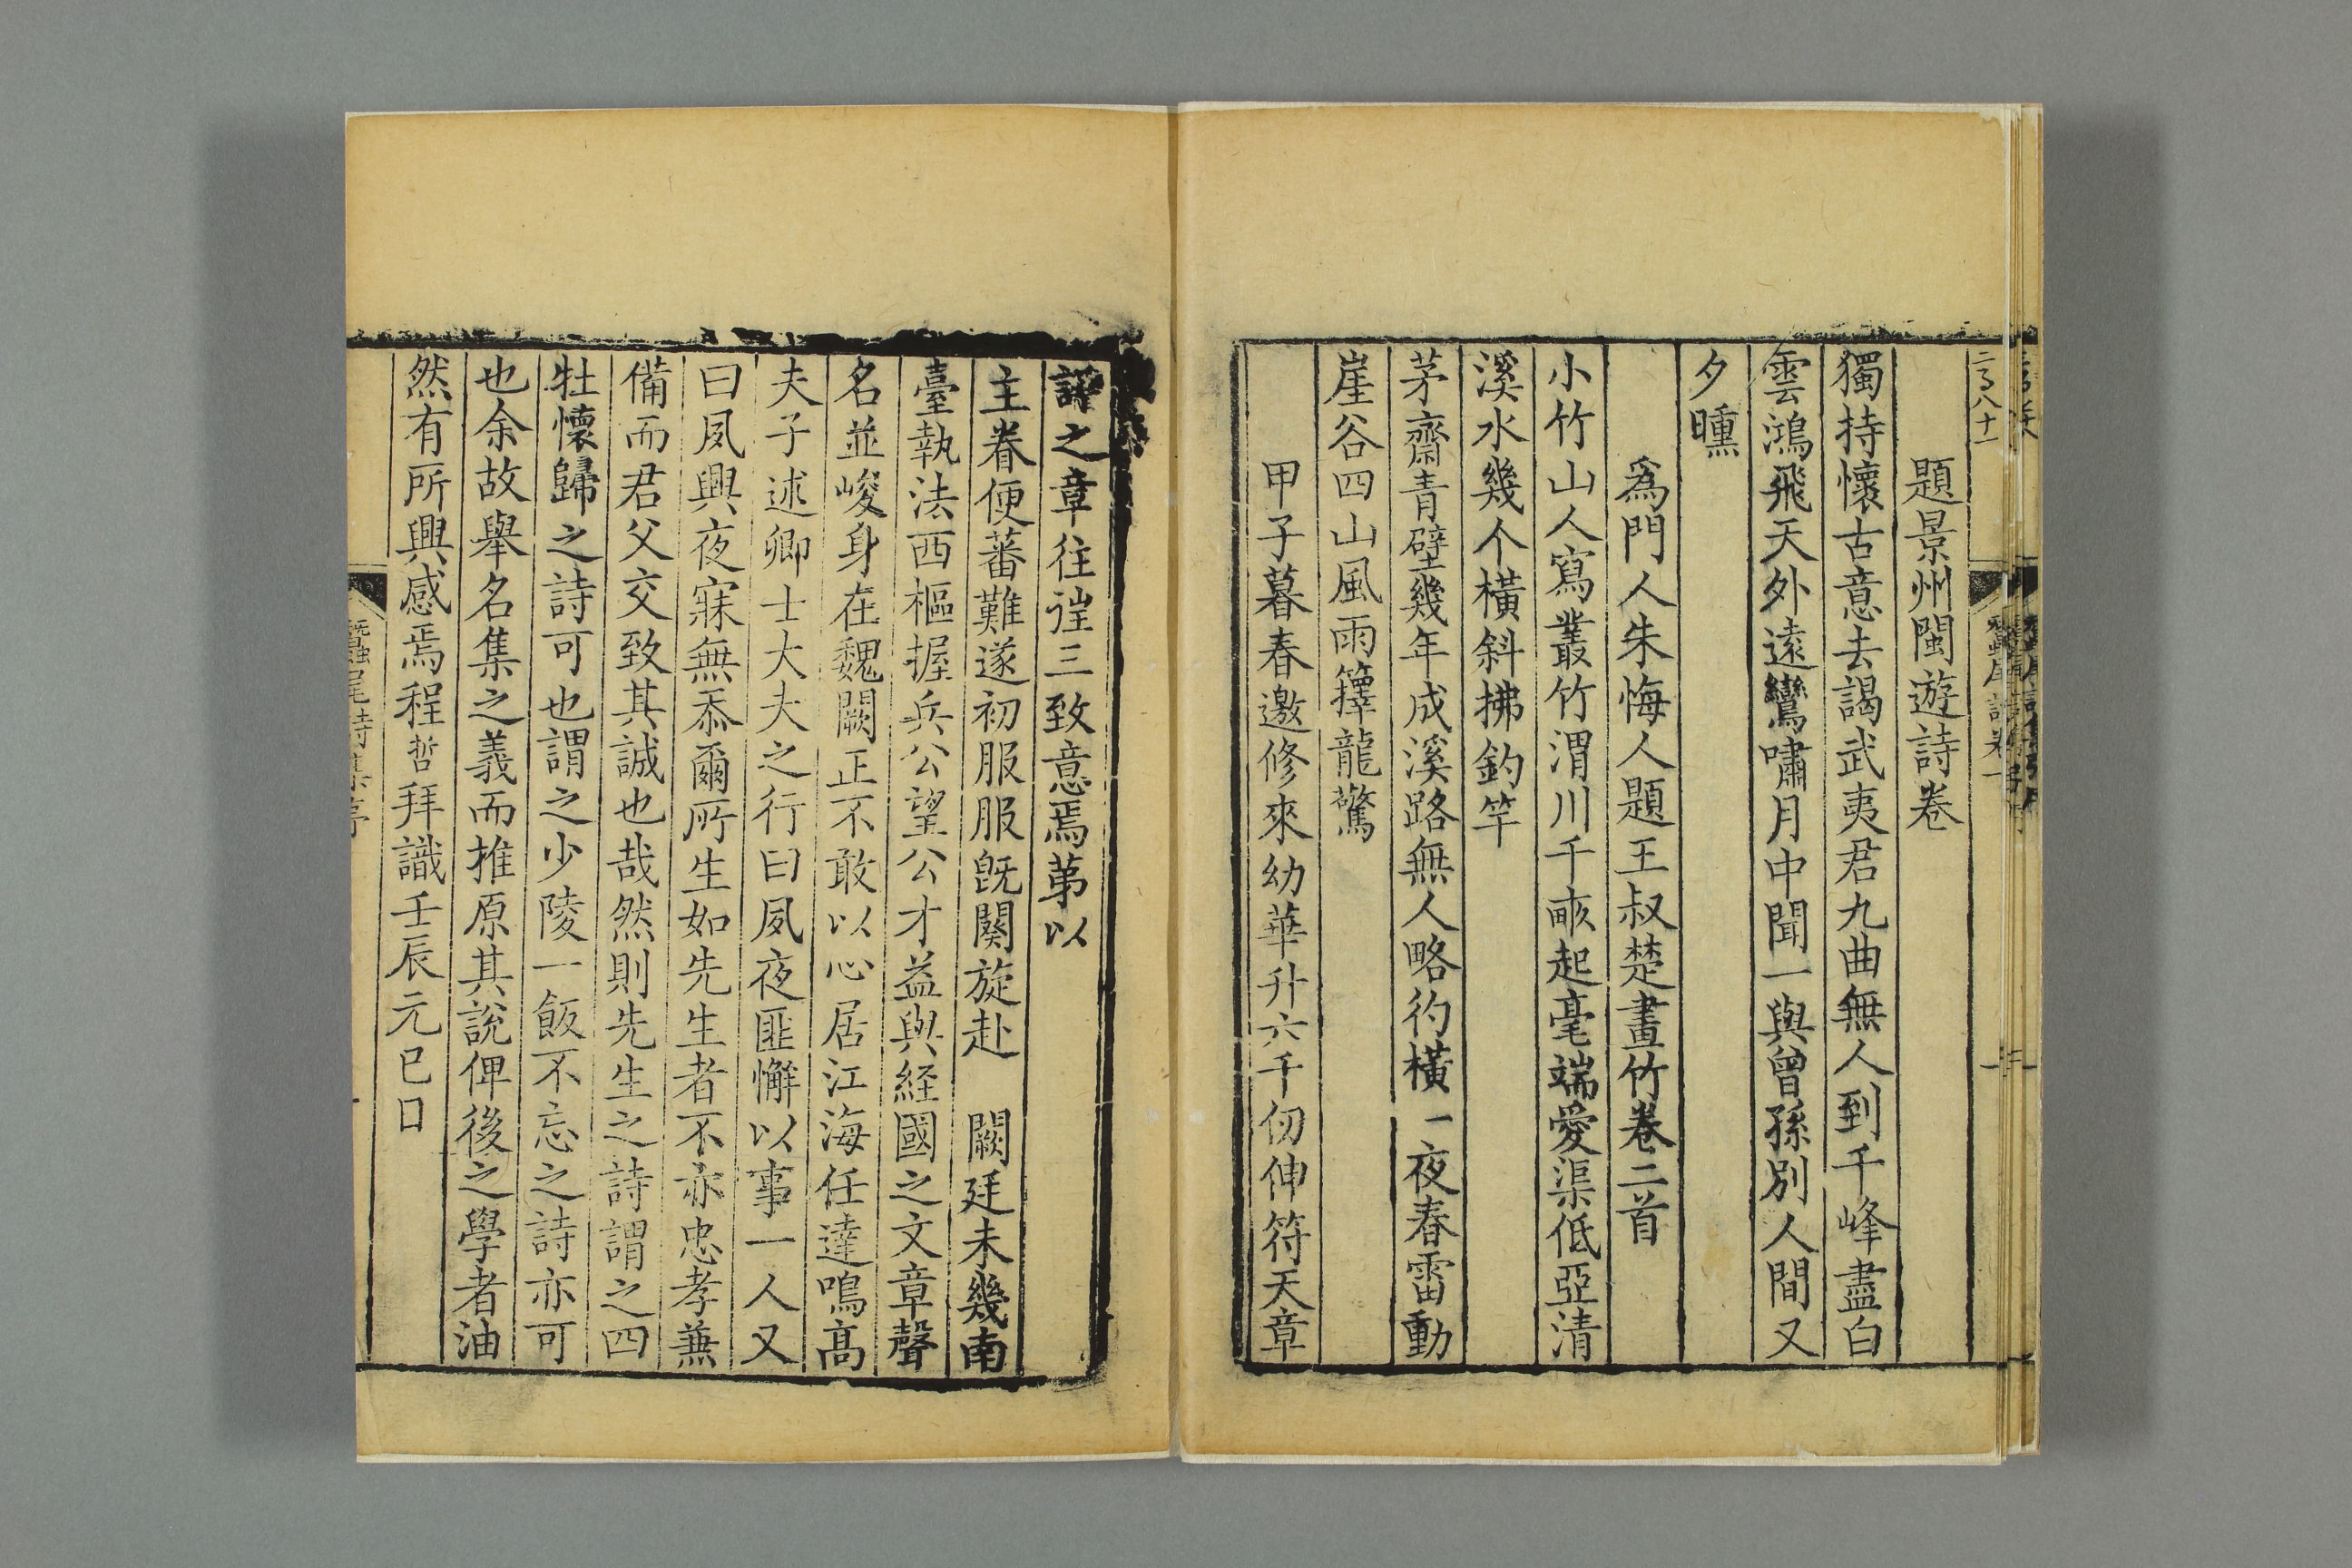 題景州閩遊詩卷
獨持懷古意去謁武夷君九曲無人到千峰盡白
雲鴻飛天外遠鸞嘯月中聞一與曾孫別人間又
夕曛
為門人朱悔人題王叔楚畫竹卷二首
小竹山人寫叢竹渭川千畝起毫端愛渠低亞清
溪水幾个橫斜拂釣竿
茅齋青壁幾年成溪路無人略彴橫一夜春雷動
崖谷四山風雨籜龍驚
甲子暮春邀修來幼華升六千仞伸符天章
之章往往三致意焉苐以
主眷便蕃難遂初服服旣闋旋赴　闕廷未幾南
臺執法西樞握兵公望公才益與経國之文章聲
名並峻身在魏闕正不敢以心居江海任達鳴高
夫子述卿士大夫之行曰夙夜匪懈以事一人又
曰夙興夜寐無忝爾所生如先生者不亦忠孝兼
備而君父交致其誠也哉然則先生之詩謂之四
牡懷歸之詩可也謂之少陵一飯不忘之詩亦可
也余故舉名集之義而推原其說俾後之學者油
然有所興感焉程哲拜識壬辰元巳日
蠶尾詩集序